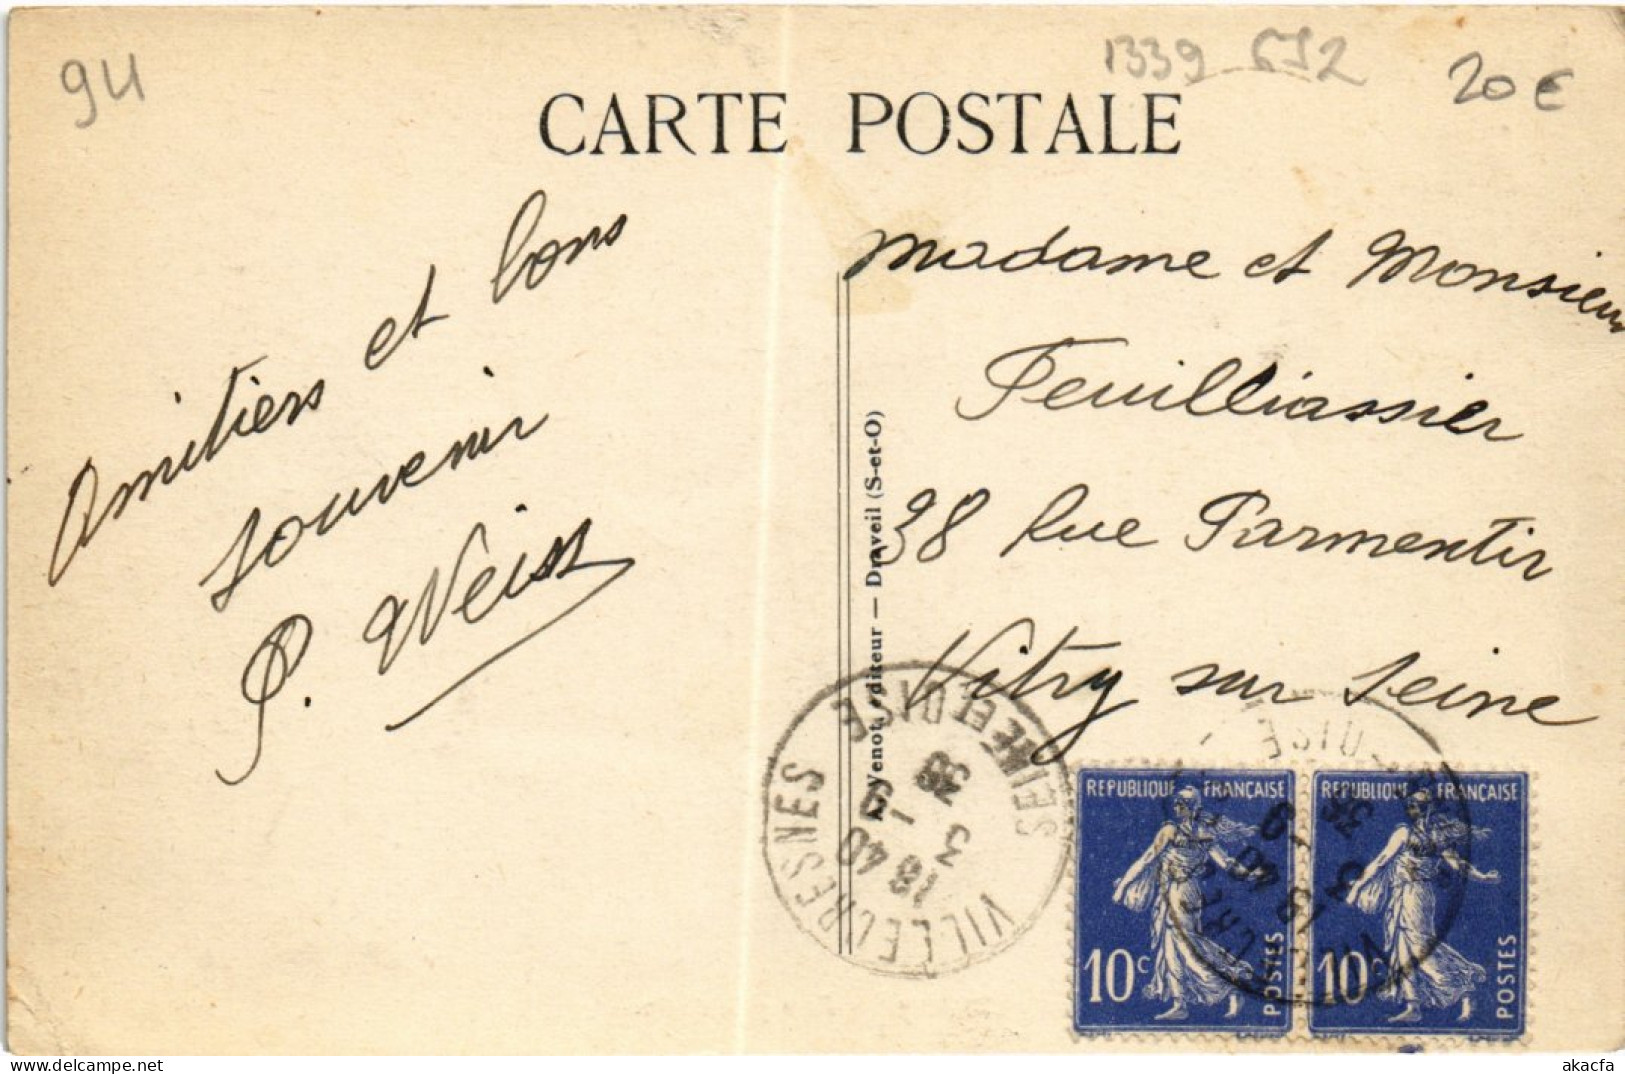 94
1339 652
20€
CARTE POSTALE
Amitiers et bons
souvenir
P. Weiss
Madame et Monsieur
Feuilliassier
38 Rue Parmentir
Vitry sur Seine
Venot, éditeur — Draveil (S-et-O)
VILLECRESNES
SEINE ET OISE
18 40
3 -9
38
REPUBLIQUE FRANÇAISE
10c
POSTES
REPUBLIQUE FRANÇAISE
10c
POSTES
18 40
3 -9
38
akacfa